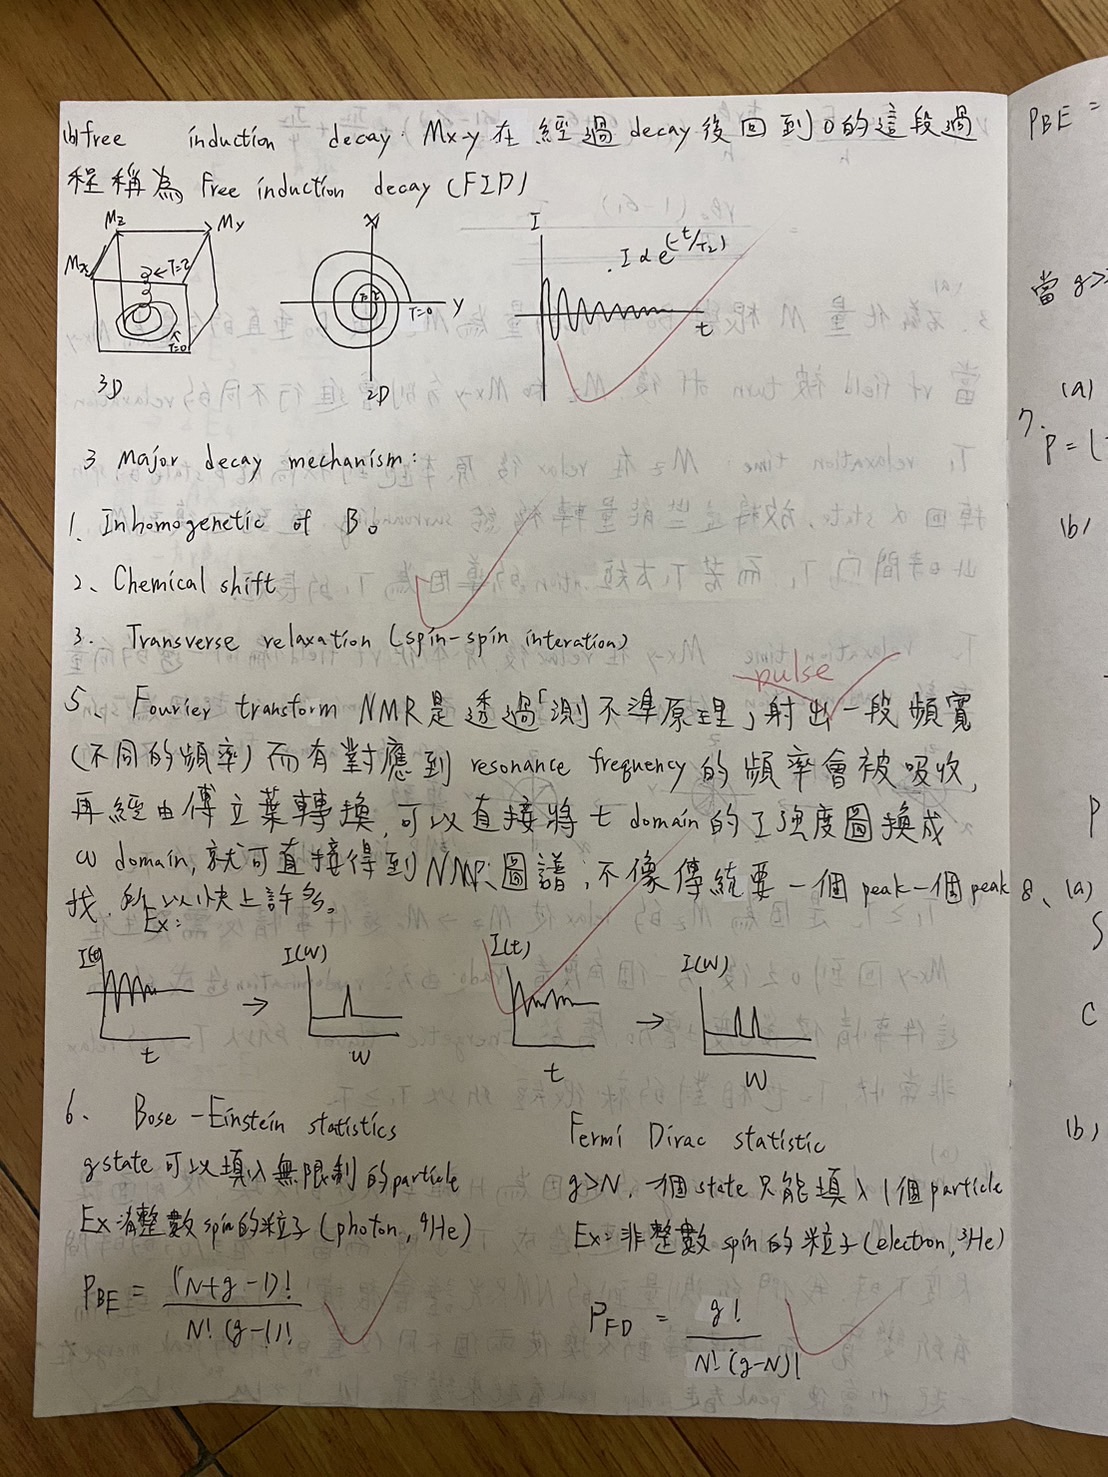 (b) free induction decay. Mx-y 在經過 decay 後回到 0 的這段過
程稱為 Free induction decay (FID)
Mz
My
Mx
T=τ
T=0
3D
X
Y
τ
T=0
2D
I
I α e^(-t/T2)
t
3 Major decay mechanism:
1. Inhomogenetic of B0
2、Chemical shift
3. Transverse relaxation (spin-spin interation)
pulse
5、Fourier transform NMR是透過「測不準原理」射出一段頻寬
(不同的頻率) 而有對應到 resonance frequency 的頻率會被吸收,
再經由傅立葉轉換,可以直接將 t domain 的 I 強度圖換成
ω domain, 就可直接得到 NMR 圖譜;不像傳統要一個 peak 一個 peak
找. 所以快上許多。
Ex:
I(t)
t
→
I(W)
W
I(t)
t
→
I(W)
W
6、 Bose-Einstein statistics
g state 可以填入無限制的 particle
Ex: 整數 spin 的粒子 (photon, 4He)
PBE = (N+g-1)! / N! (g-1)!
Fermi Dirac statistic
g>N, 一個 state 只能填入 1 個 particle
Ex: 非整數 spin 的粒子 (electron, 3He)
PFD = g! / N! (g-N)!
PBE =
當 g>
(a)
7.
P = (
(b)
P
8、(a)
S
C
(b)